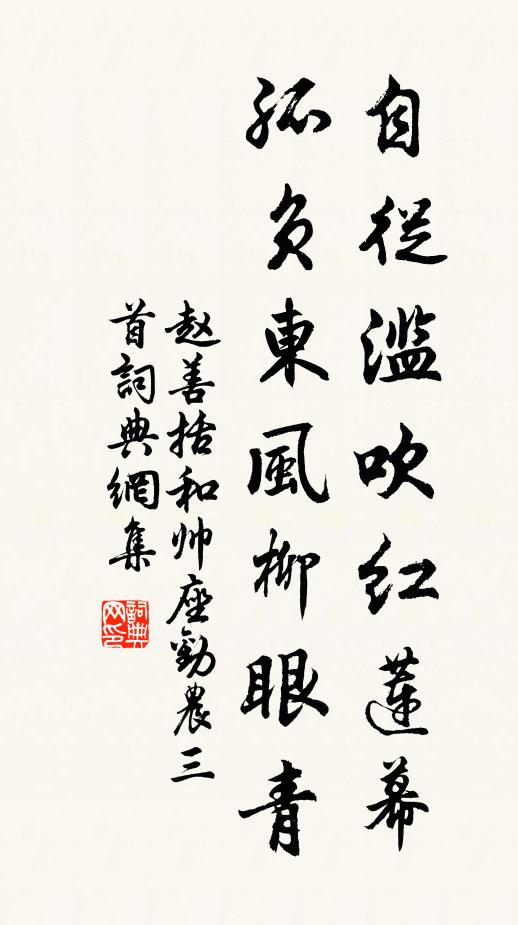 自從濫吹紅蓮幕
孤負東風柳眼青
赵善括和帅座勸農三
首詞典網集
詞典网印